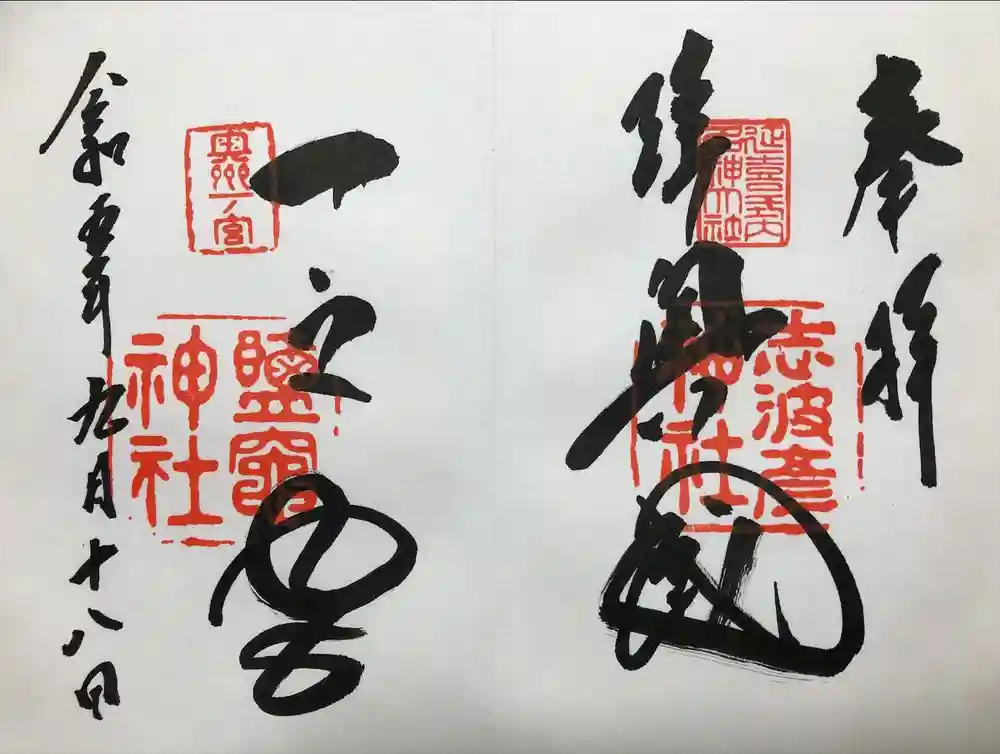 奉拝
延喜式内
名神大社
陸奥國
志波彦
神社
一之宮
鹽竈
神社
令和五年九月十八日